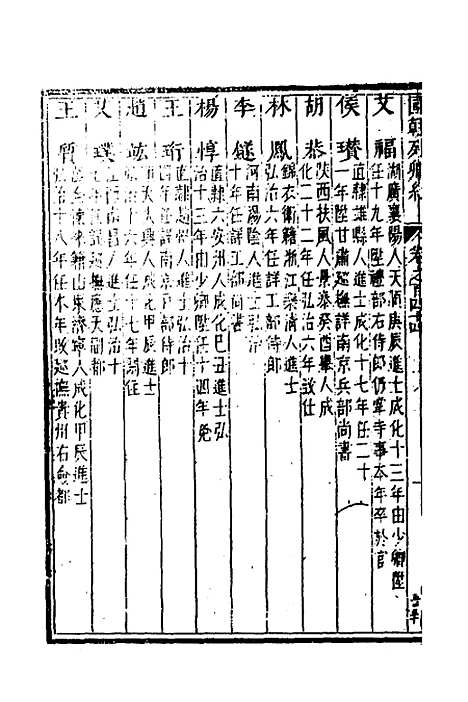 國朝列卿紀 卷之一百四十四
艾福 湖廣襄陽人天順庚辰進士成化十三年由少卿陞
任十九年陞禮部右侍郎仍掌寺事本年卒於官
侯瓚 直隸雄縣人進士成化十七年任二十
一年陞甘肅巡撫詳南京兵部尚書
胡恭 陝西扶風人景泰癸酉舉人成
化二十二年任弘治六年致仕
林鳳 錦衣衛籍浙江樂清人進士
弘治六年任詳工部侍郎
李鐩 河南湯陰人進士弘治
十年任詳工部尚書
楊惇 直隸六安州人成化己丑進士弘
治十三年由少卿陞任十四年免
王珩 直隸趙州人進士弘治十
四年任詳戶部侍郎
趙竑 大興人成化甲辰進士
弘治十六年任十七年調任
艾璞 江西南昌人進士弘治十
七年任詳巡撫應天副都
王質 籍山東濟寧人成化甲辰進士
弘治十八年任本年改巡撫貴州右僉都